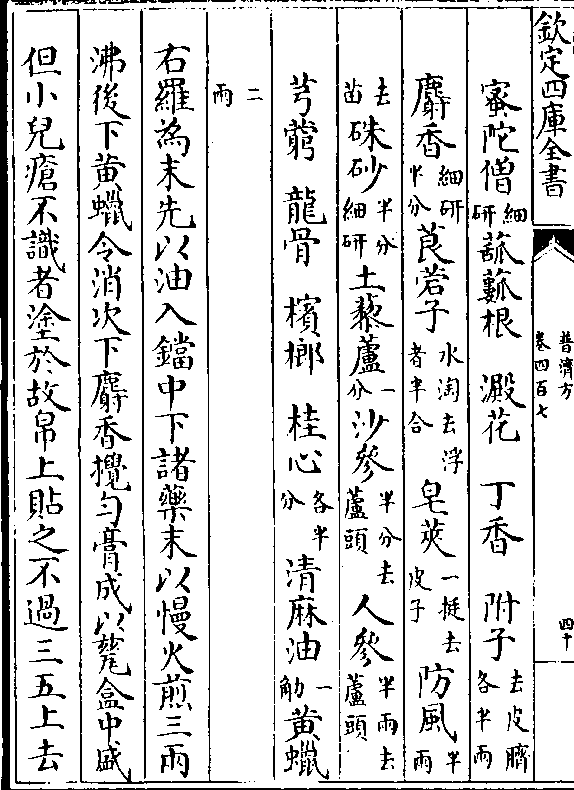 欽定四庫全書
普濟方
卷四百七
四十
蜜陀僧細研菰蓏根 澱花 丁香 附子去皮臍各半兩
麝香細研半分莨菪子水淘去浮者半合 皂莢一挺去皮子 防風半兩
去苗硃砂半分細研土藜蘆一分沙參半分去蘆頭 人參半兩去蘆頭
芎藭 龍骨 檳榔 桂心各半分 清麻油一觔黄蠟
二兩
右羅為末先以油入鐺中下諸藥末以慢火煎三兩
沸後下黄蠟令消次下麝香攪勻膏成以甆盒中盛
但小兒瘡不識者塗於故帛上貼之不過三五上去